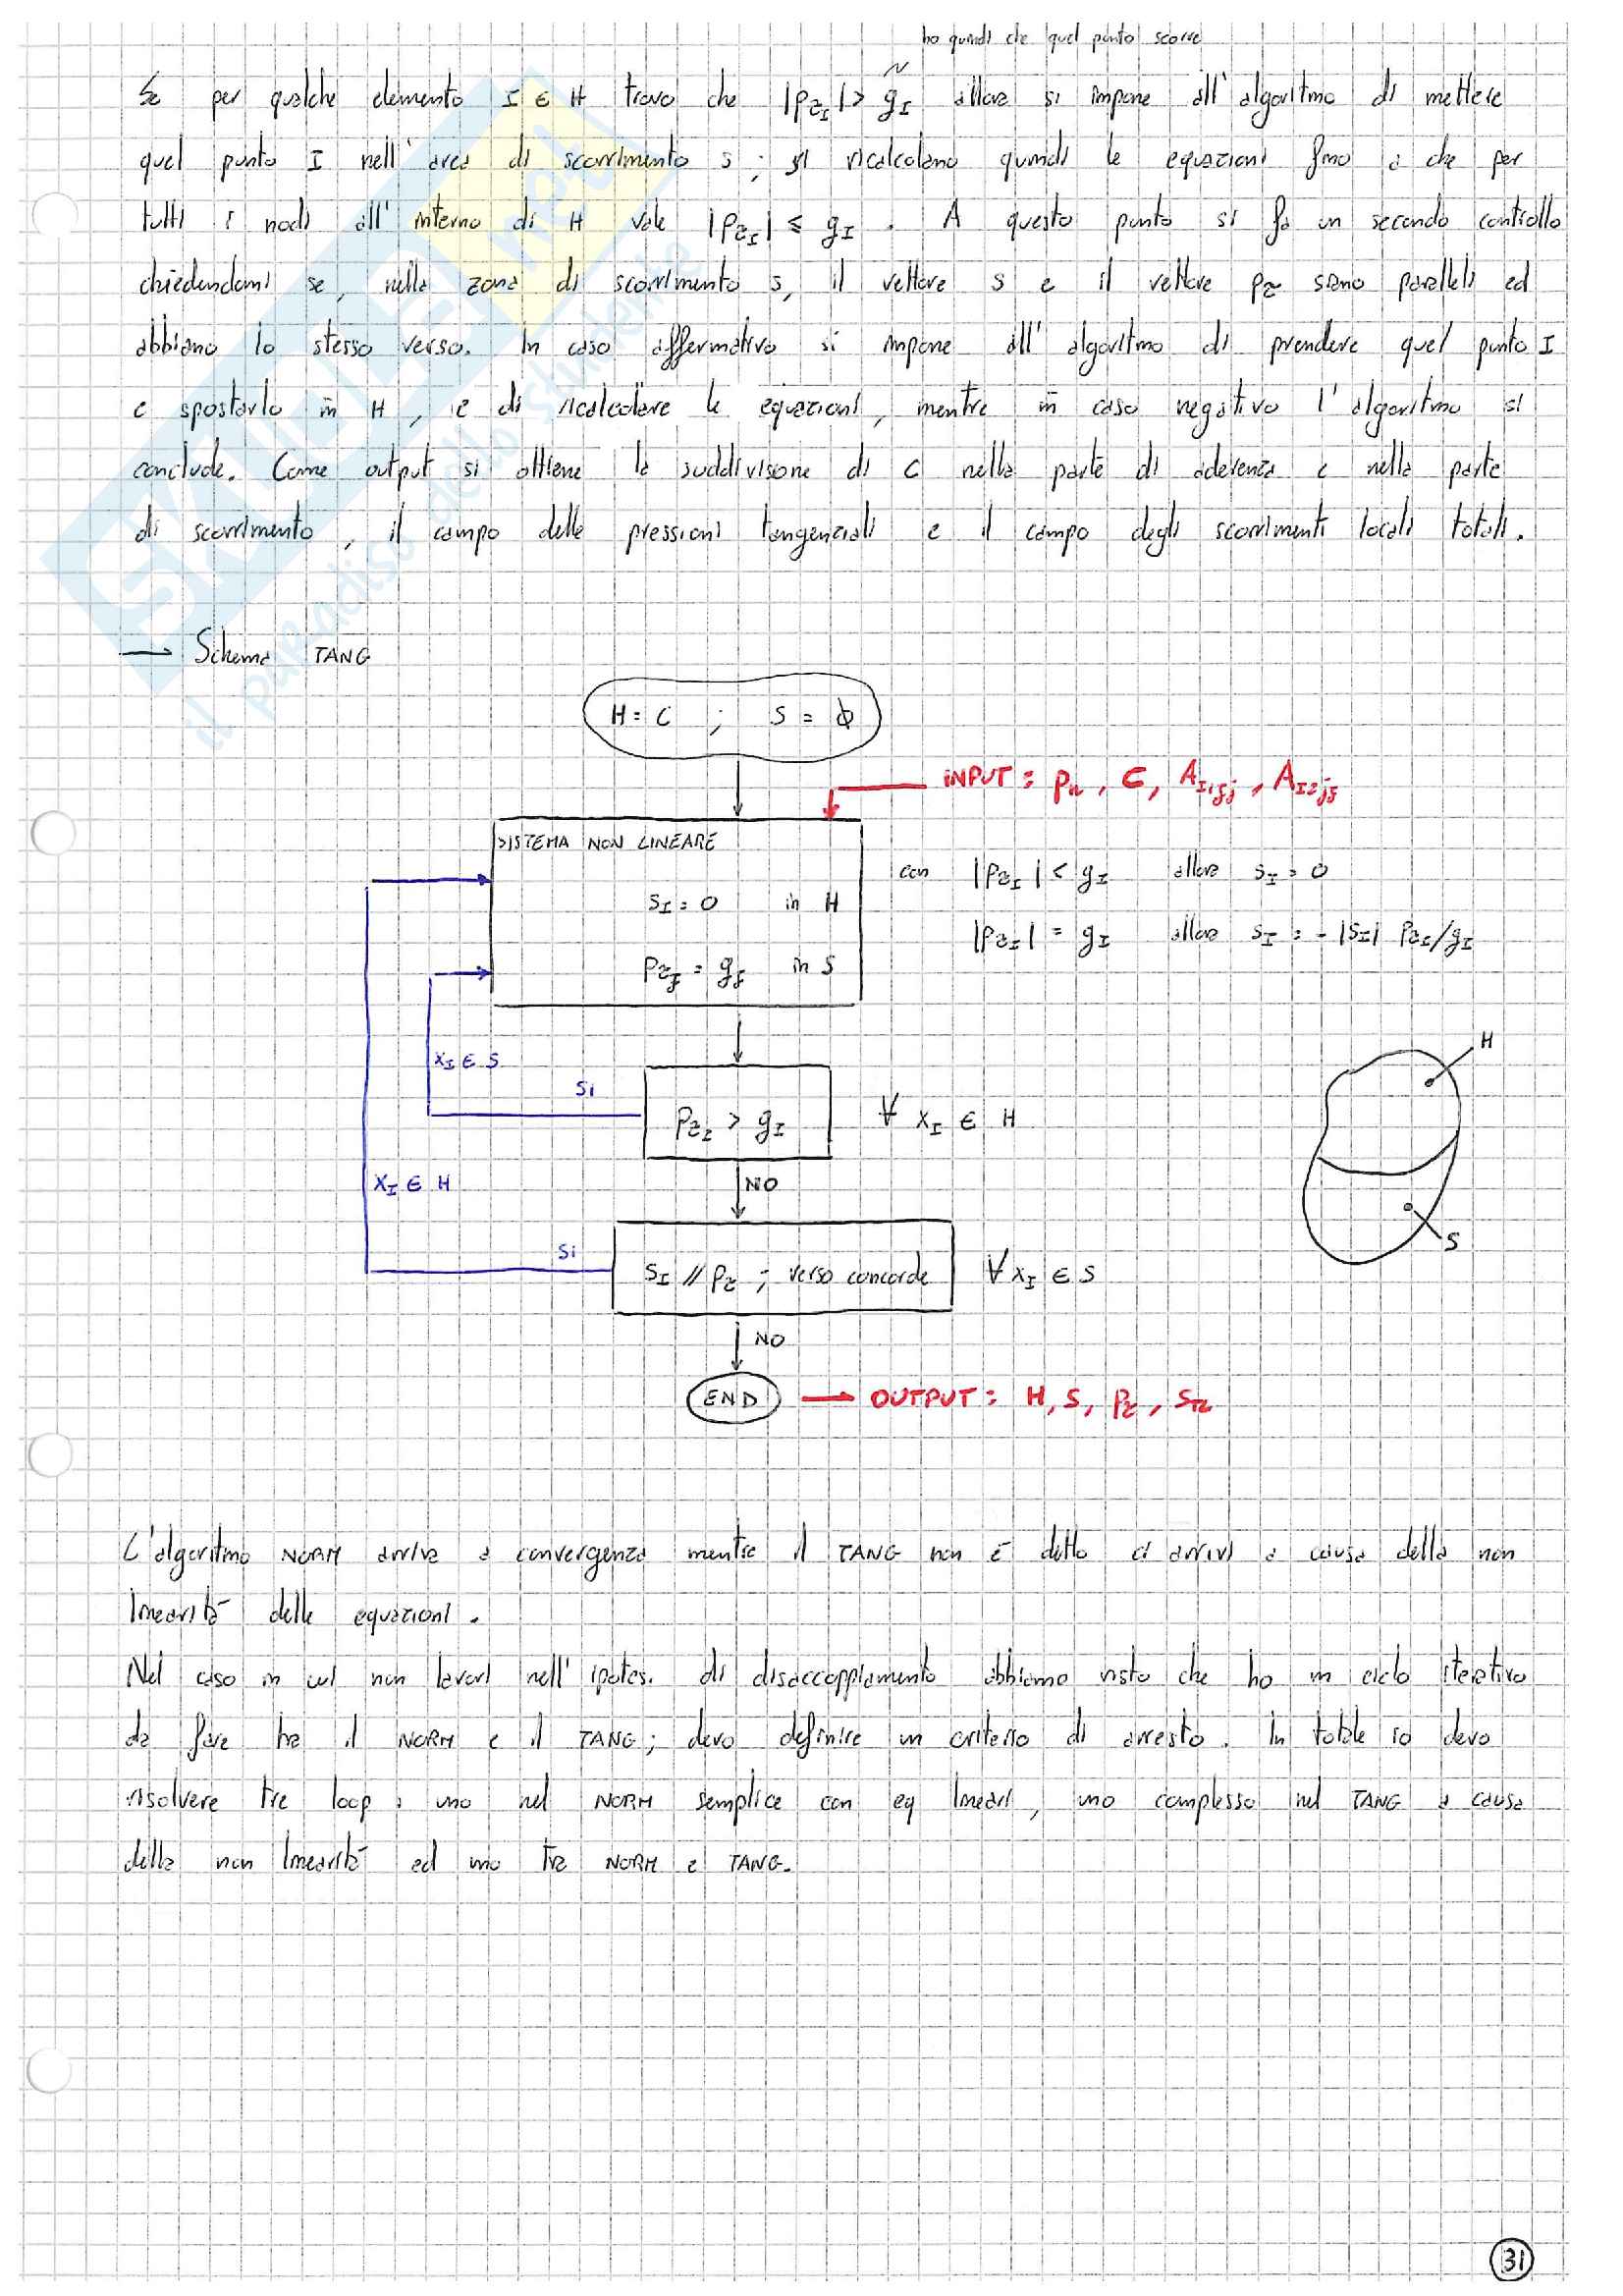 ho quindi che quel punto scorre
Se per qualche elemento I ∈ H trovo che |pτI| > gI allora si impone all'algoritmo di mettere
quel punto I nell'area di scorrimento S ; si ricalcolano quindi le equazioni fino a che per
tutti i nodi all'interno di H vale |pτI| ≤ gI . A questo punto si fa un secondo controllo
chiedendomi se, nella zona di scorrimento S, il vettore s e il vettore pτ siano paralleli ed
abbiano lo stesso verso. In caso affermativo si impone all'algoritmo di prendere quel punto I
e spostarlo in H , e di ricalcolare le equazioni, mentre in caso negativo l'algoritmo si
conclude. Come output si ottiene la suddivisone di C nella parte di aderenza e nella parte
di scorrimento , il campo delle pressioni tangenziali e il campo degli scorrimenti locali totali.
→ Schema TANG
H = C ; S = ϕ
INPUT : pn , C, AI1jj , AI2jj
SISTEMA NON LINEARE
sI = 0 in H
pτJ = gJ in S
con |pτI| < gI allora sI = 0
|pτI| = gI allora sI = - |sI| pτI/gI
H
xI ∈ S
Si
pτI > gI ∀ xI ∈ H
xI ∈ H
NO
S
Si
sI // pτ ; verso concorde ∀ xI ∈ S
NO
END → OUTPUT : H, S, pτ , sτ
L'algoritmo NORM arriva a convergenza mentre il TANG non è detto ci arrivi a causa della non
linearità delle equazioni .
Nel caso in cui non lavori nell'ipotesi di disaccoppiamento abbiamo visto che ho un ciclo iterativo
da fare tra il NORM e il TANG ; devo definire un criterio di arresto. In totale io devo
risolvere tre loop : uno nel NORM semplice con eq lineari , uno complesso nel TANG a causa
della non linearità ed uno tra NORM e TANG.
31
SKUOLA.net
il paradiso dello studente